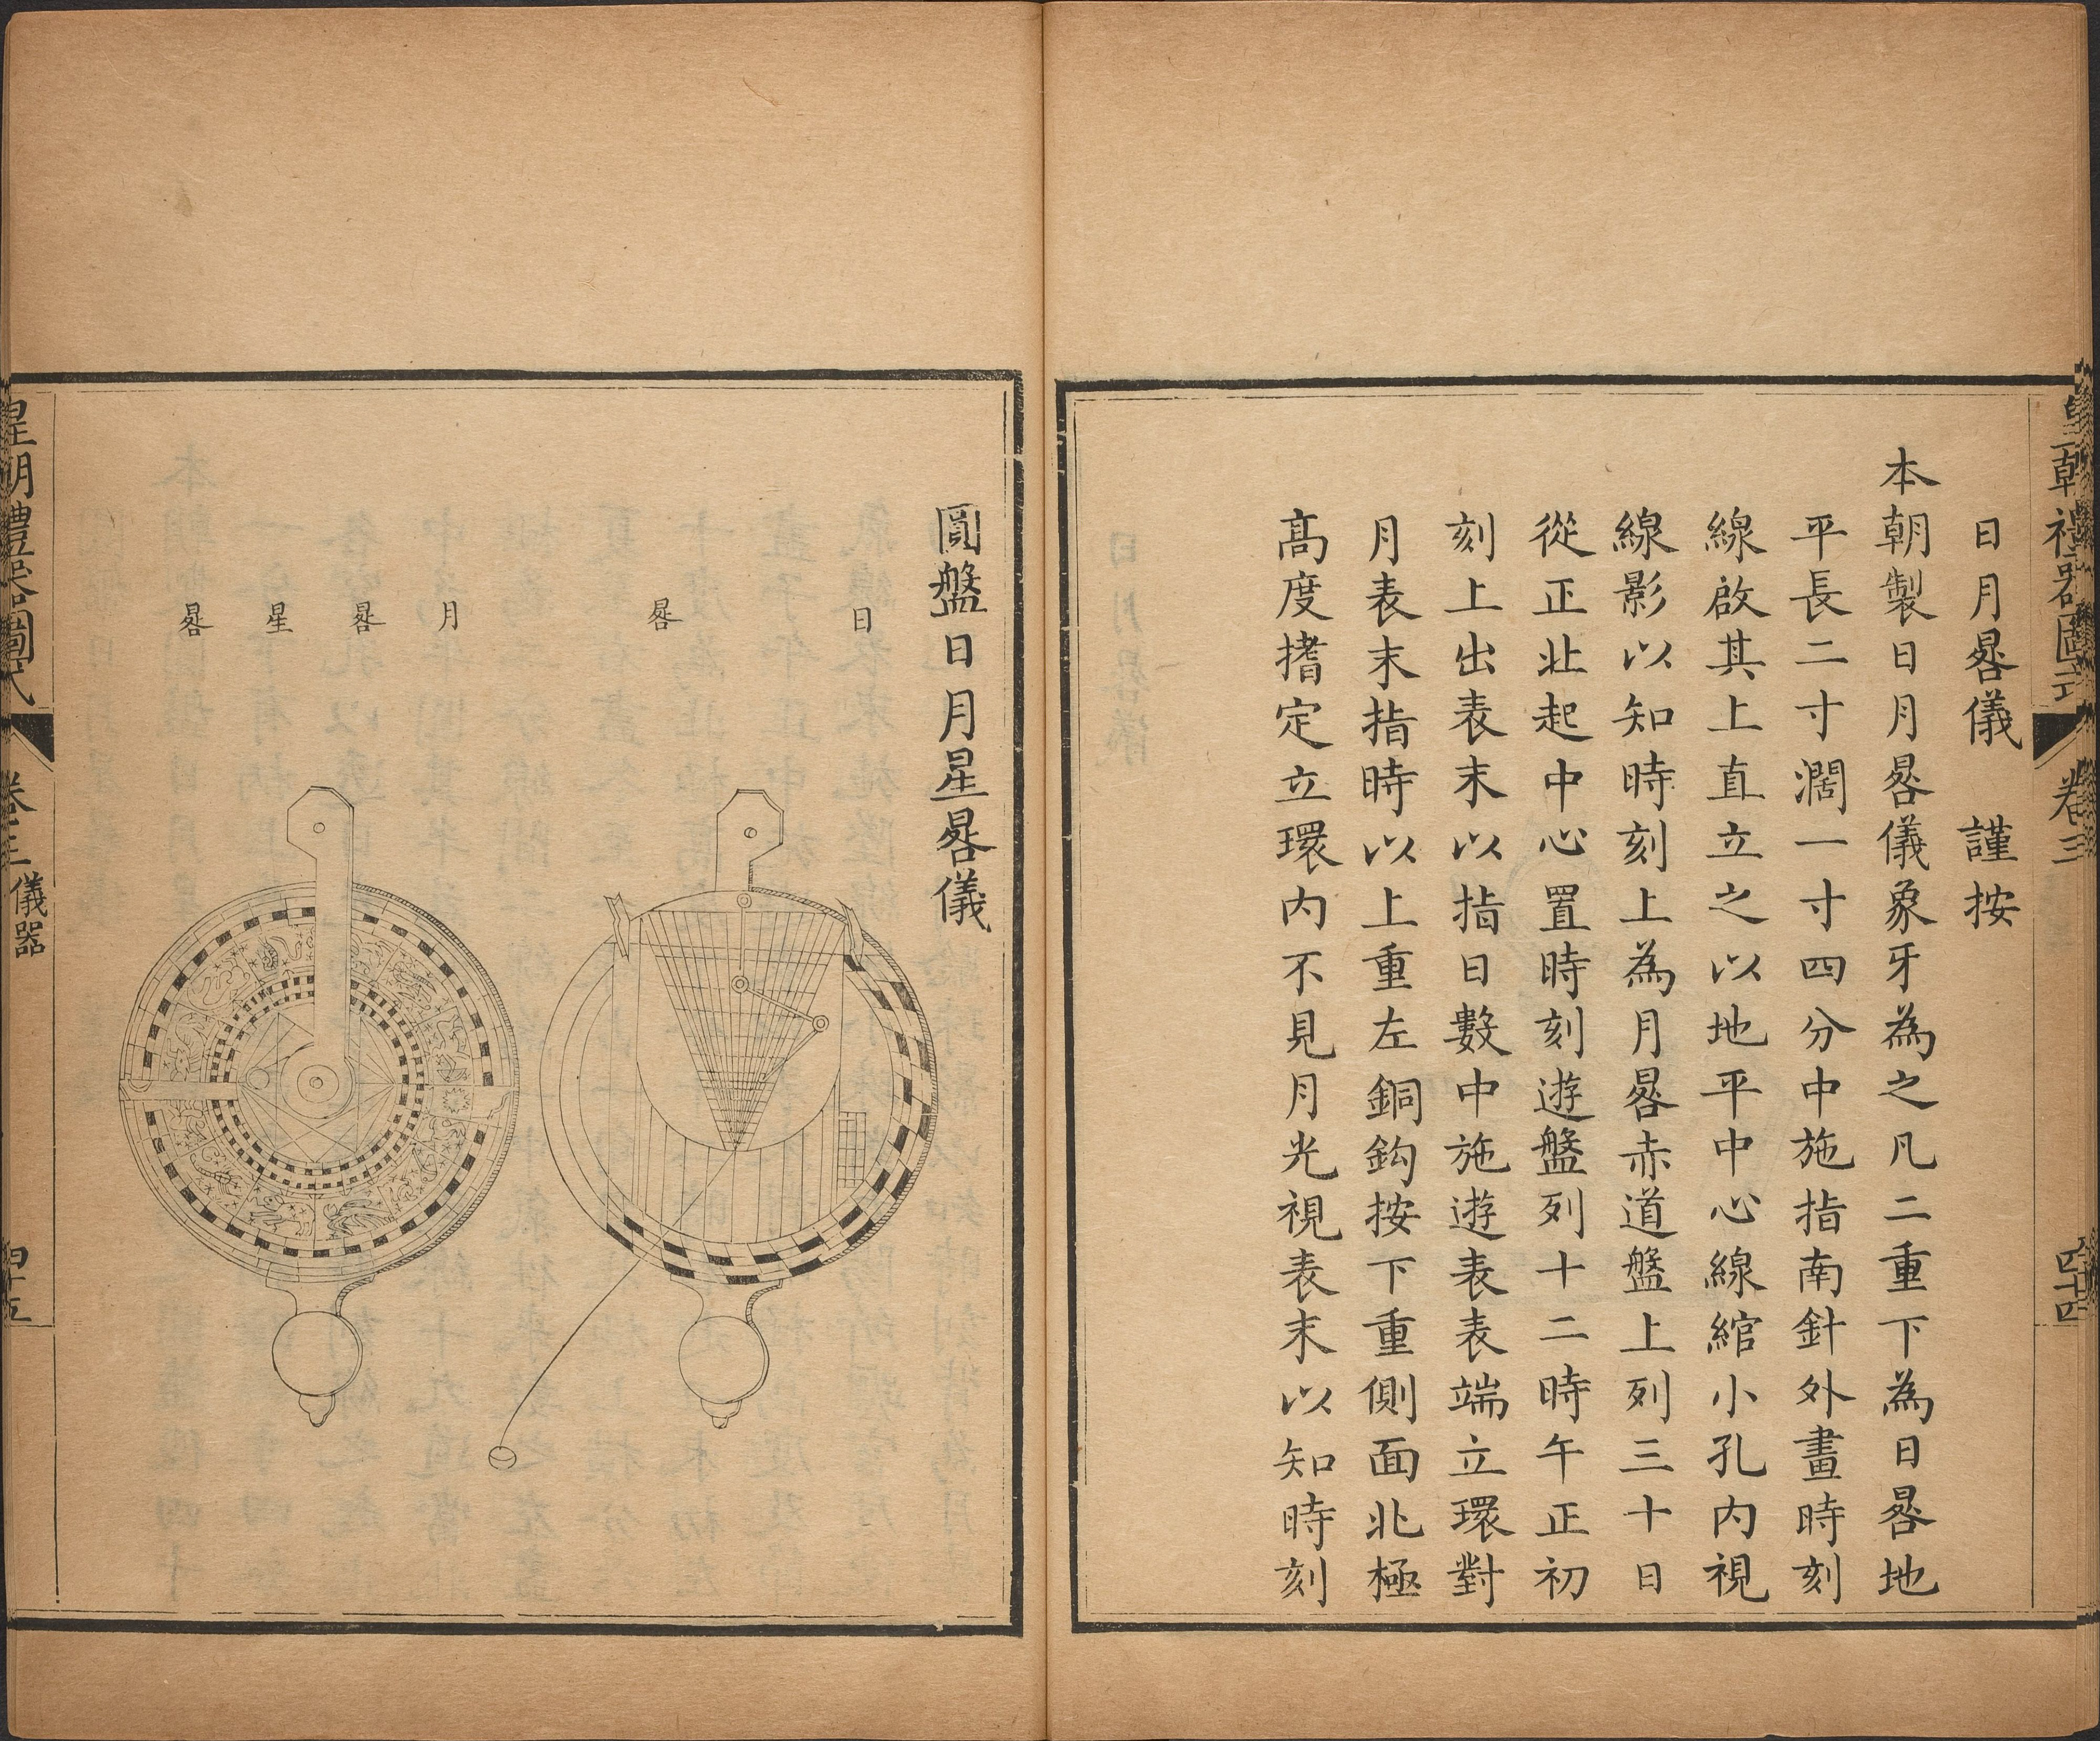 皇朝禮器圖式 卷三 四十四
日月晷儀 謹按
本朝製日月晷儀象牙為之凡二重下為日晷地
平長二寸濶一寸四分中施指南針外畫時刻
線啟其上直立之以地平中心線綰小孔內視
線影以知時刻上為月晷赤道盤上列三十日
從正北起中心置時刻遊盤列十二時午正初
刻上出表末以指日數中施遊表表端立環對
月表末指時以上重左銅鈎按下重側面北極
高度揩定立環內不見月光視表末以知時刻
圓盤日月星晷儀
日 晷
月 晷 星 晷
皇朝禮器圖式 卷三 儀器 四十五